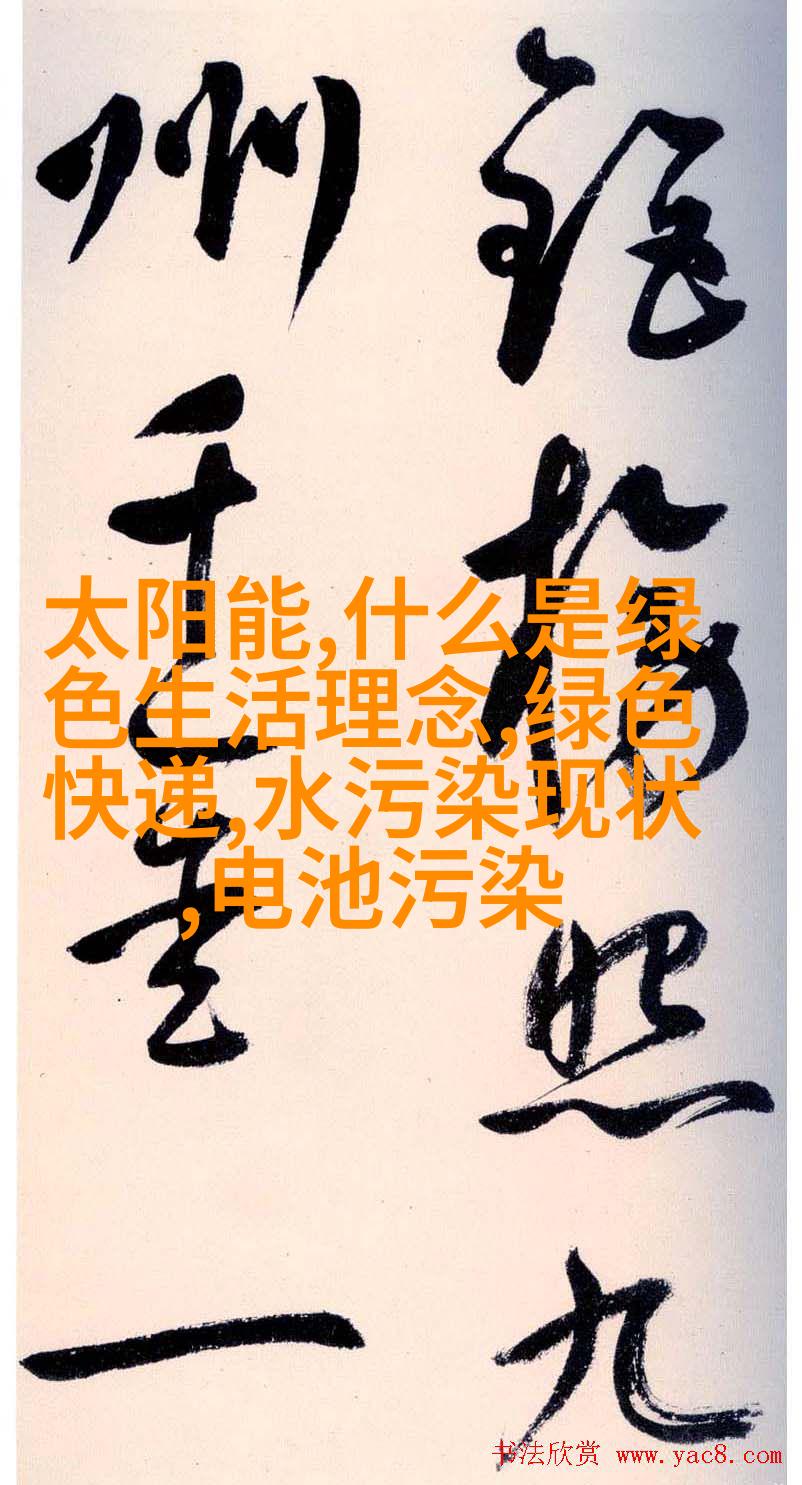 照九
州一
太阳能,什么是绿
色生活理念,绿色
快递,水污染现状
,电池污染
书法欣赏 www.yac8.com